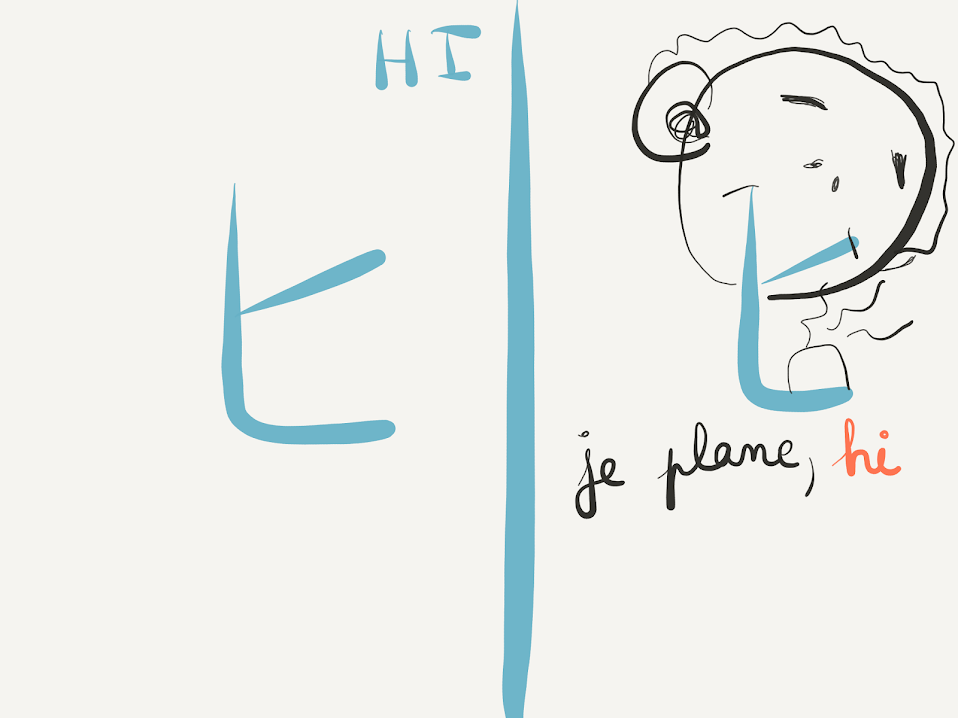 HI
ヒ
ヒ
je plane, hi